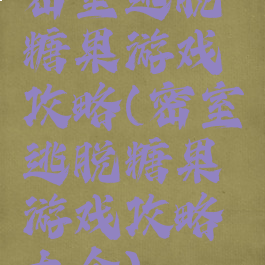 密室逃脱
糖果游戏
攻略(密室
逃脱糖果
游戏攻略
大全)